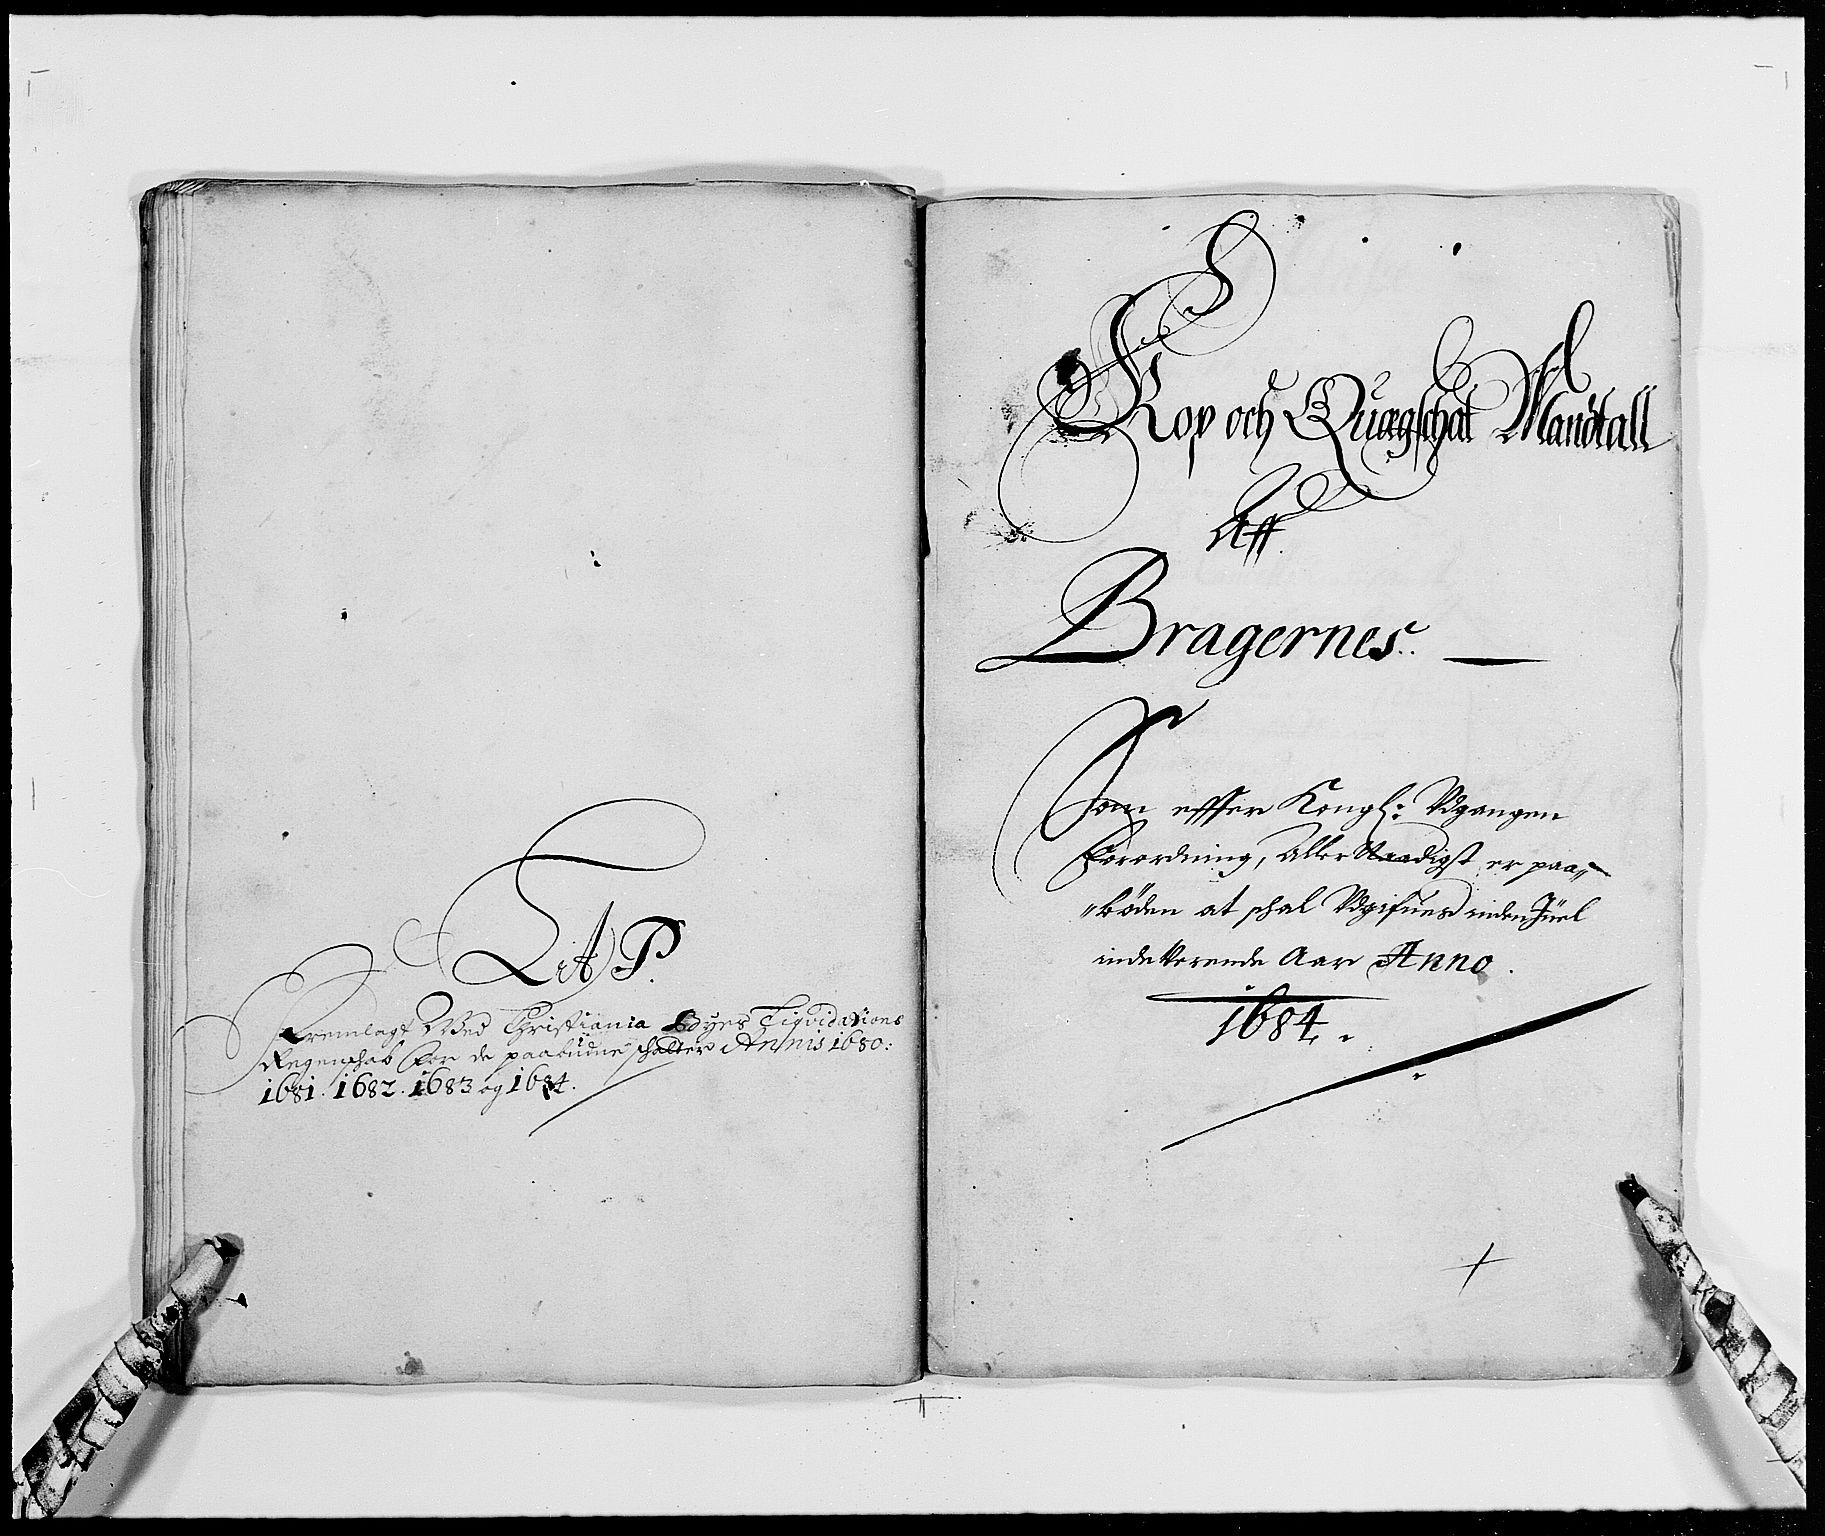 Lit P.
Fremlagt Wed Christiania Byes Liqvidations
Regenschab for de paabudne schatter Annis 1680:
1681. 1682. 1683 og 1684.
Kop och Quægschat Mandtall
Aff
Bragernes.
Som effter Kongl: Udgangen
Forordning, Aller Naadigst er paa„
„böden at schal Udgifues inden Juel
indeværende Aar Anno.
1684.